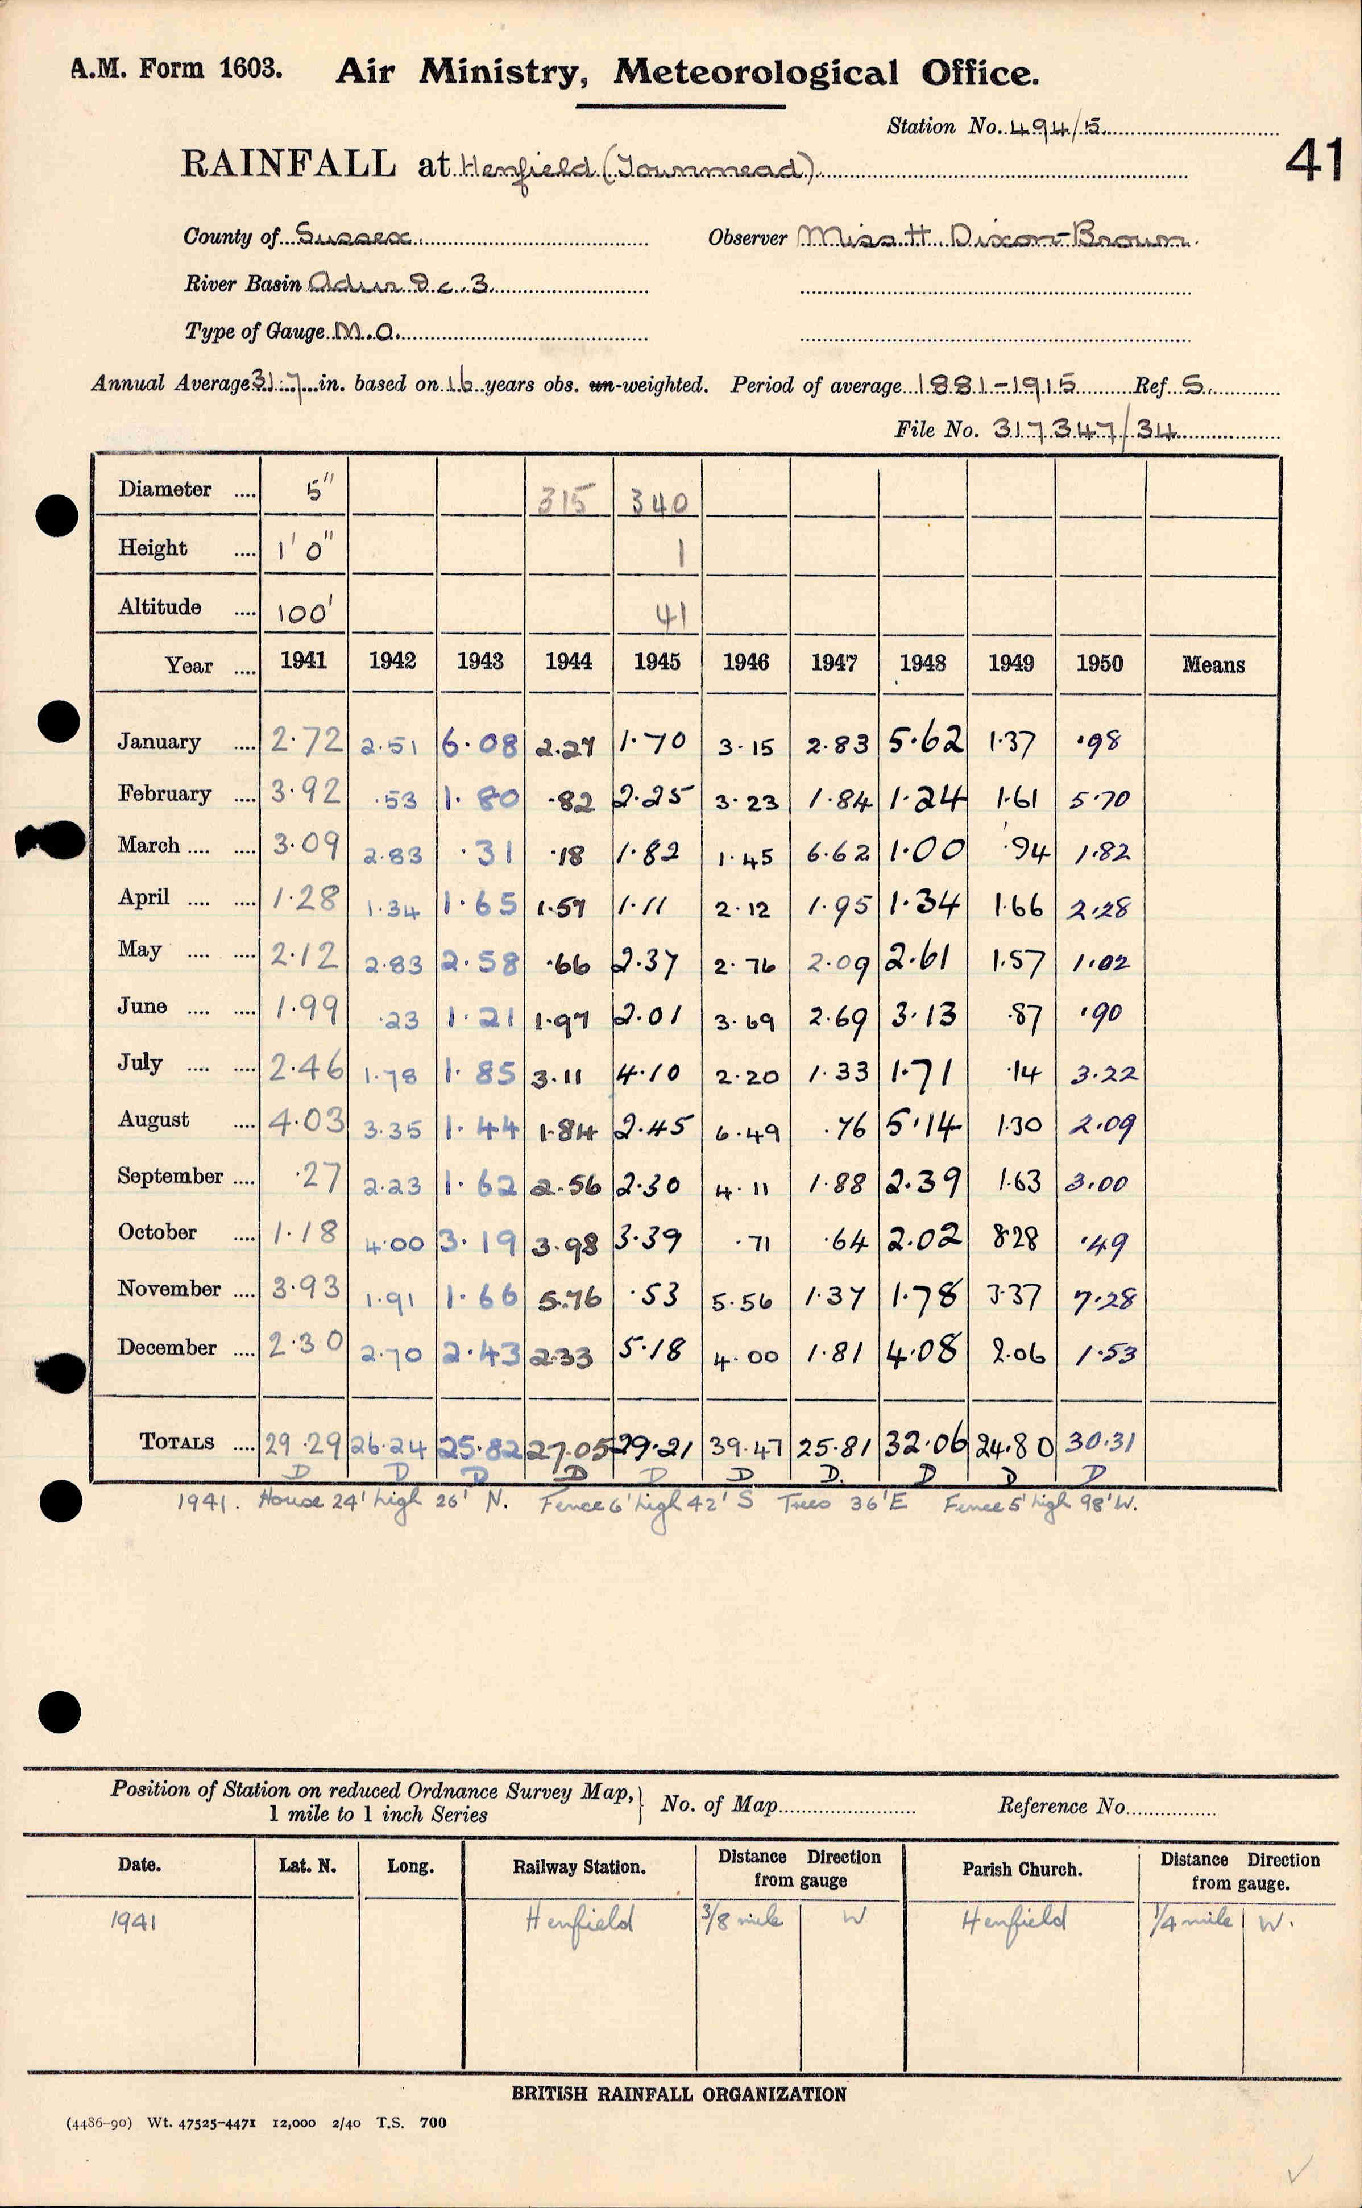 A.M. Form 1603. Air Ministry, Meteorological Office.
Station No. 494/5
41
RAINFALL at Henfield (Townmead)
County of Sussex Observer Miss H. Dixon-Brown.
River Basin Adur D c. 3
Type of Gauge M.O.
Annual Average 31.7 in. based on 16 years obs. un-weighted. Period of average 1881-1915 Ref. S.
File No. 317347/34
Diameter .... 5" 315 340
Height .... 1' 0" 1
Altitude .... 100' 41
Year .... 1941 1942 1943 1944 1945 1946 1947 1948 1949 1950 Means
January .... 2.72 2.51 6.08 2.27 1.70 3.15 2.83 5.62 1.37 .98
February .... 3.92 .53 1.80 .82 2.25 3.23 1.84 1.24 1.61 5.70
March .... .... 3.09 2.83 .31 .18 1.82 1.45 6.62 1.00 .94 1.82
April .... .... 1.28 1.34 1.65 1.57 1.11 2.12 1.95 1.34 1.66 2.28
May .... .... 2.12 2.83 2.58 .66 2.37 2.76 2.09 2.61 1.57 1.02
June .... .... 1.99 .23 1.21 1.97 2.01 3.69 2.69 3.13 .87 .90
July .... .... 2.46 1.78 1.85 3.11 4.10 2.20 1.33 1.71 .14 3.22
August .... 4.03 3.35 1.44 1.84 2.45 6.49 .76 5.14 1.30 2.09
September .... .27 2.23 1.62 2.56 2.30 4.11 1.88 2.39 1.63 3.00
October .... 1.18 4.00 3.19 3.98 3.39 .71 .64 2.02 8.28 .49
November .... 3.93 1.91 1.66 5.76 .53 5.56 1.37 1.78 3.37 7.28
December .... 2.30 2.70 2.43 2.33 5.18 4.00 1.81 4.08 2.06 1.53
TOTALS .... 29.29 26.24 25.82 27.05 29.21 39.47 25.81 32.06 24.80 30.31
D D D D D D D. D D D
1941. House 24' high 26' N. Fence 6' high 42' S Trees 36' E Fence 5' high 98' W.
Position of Station on reduced Ordnance Survey Map,
1 mile to 1 inch Series
No. of Map Reference No.
Date. Lat. N. Long. Railway Station. Distance Direction from gauge Parish Church. Distance Direction from gauge.
1941 Henfield 3/8 mile W Henfield 1/4 mile W.
BRITISH RAINFALL ORGANIZATION
(4486-90) Wt. 47525-4471 12,000 2/40 T.S. 700